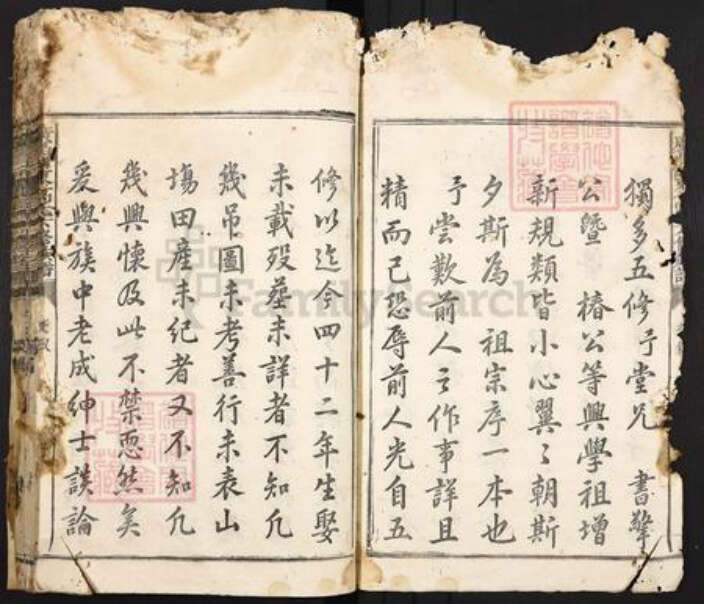 獨多五修予堂兄　書擎
公暨　椿公等與學祖增
新規類皆小心翼〻朝斯
夕斯為　祖宗序一本也
予嘗歎前人之作事詳且
精而己恐辱前人光自五
修以迄今四十二年生娶
未載歿塟未詳者不知凢
幾吊圖未考善行未表山
塲田產未紀者又不知凢
幾興懷及此不禁惄然矣
爰與族中老成紳士談論
FamilySearch